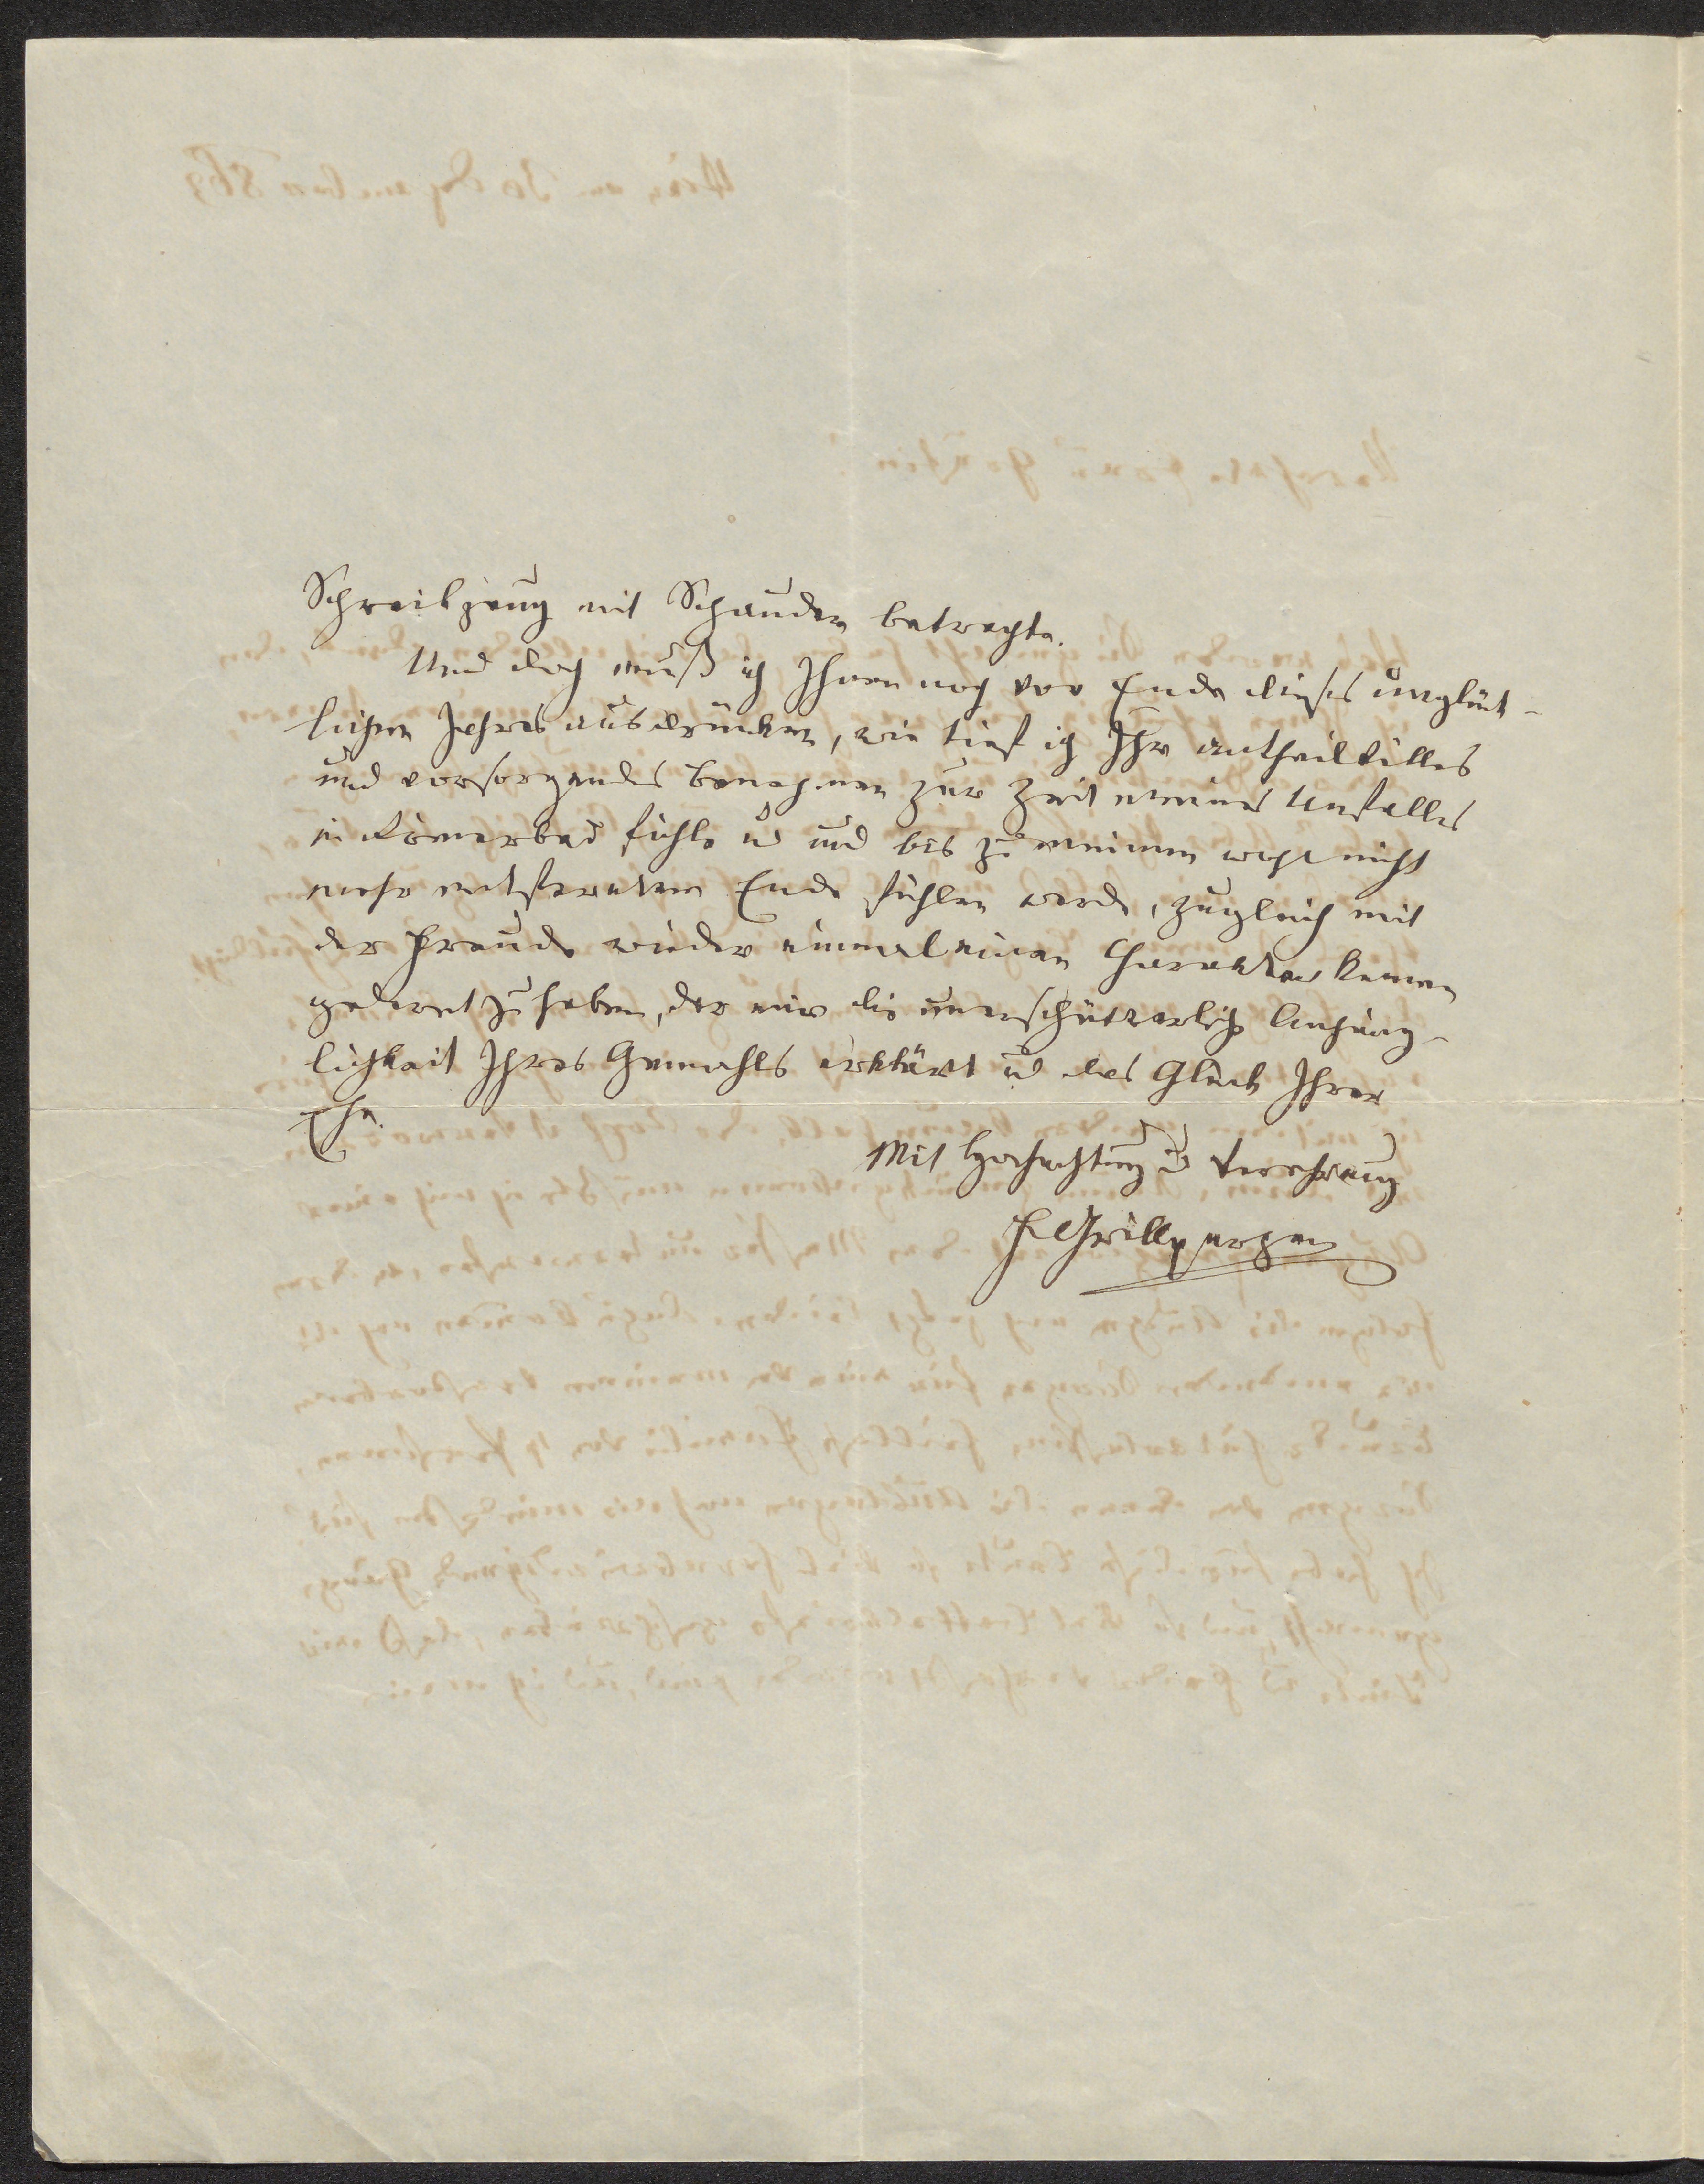 Schreibzeug mit Schauder betrachte.
Und doch muß ich Ihnen noch vor Ende dieses unglück-
lichen Jahres ausdrücken, wie tief ich Ihr antheilvolles
und vorsorgendes Benehmen zur Zeit meines Unfalles
in Römerbad fühle u und bis zu meinem wohl nicht
mehr entfernten Ende fühlen werde, zugleich mit
der Freude wieder einmal einen Charakter kennen
gelernt zu haben, der mir die unerschütterliche Anhäng-
lichkeit Ihres Gemahls erklärt u das Glück Ihrer
Ehe.
Mit Hochachtung u Verehrung
F Grillparzer